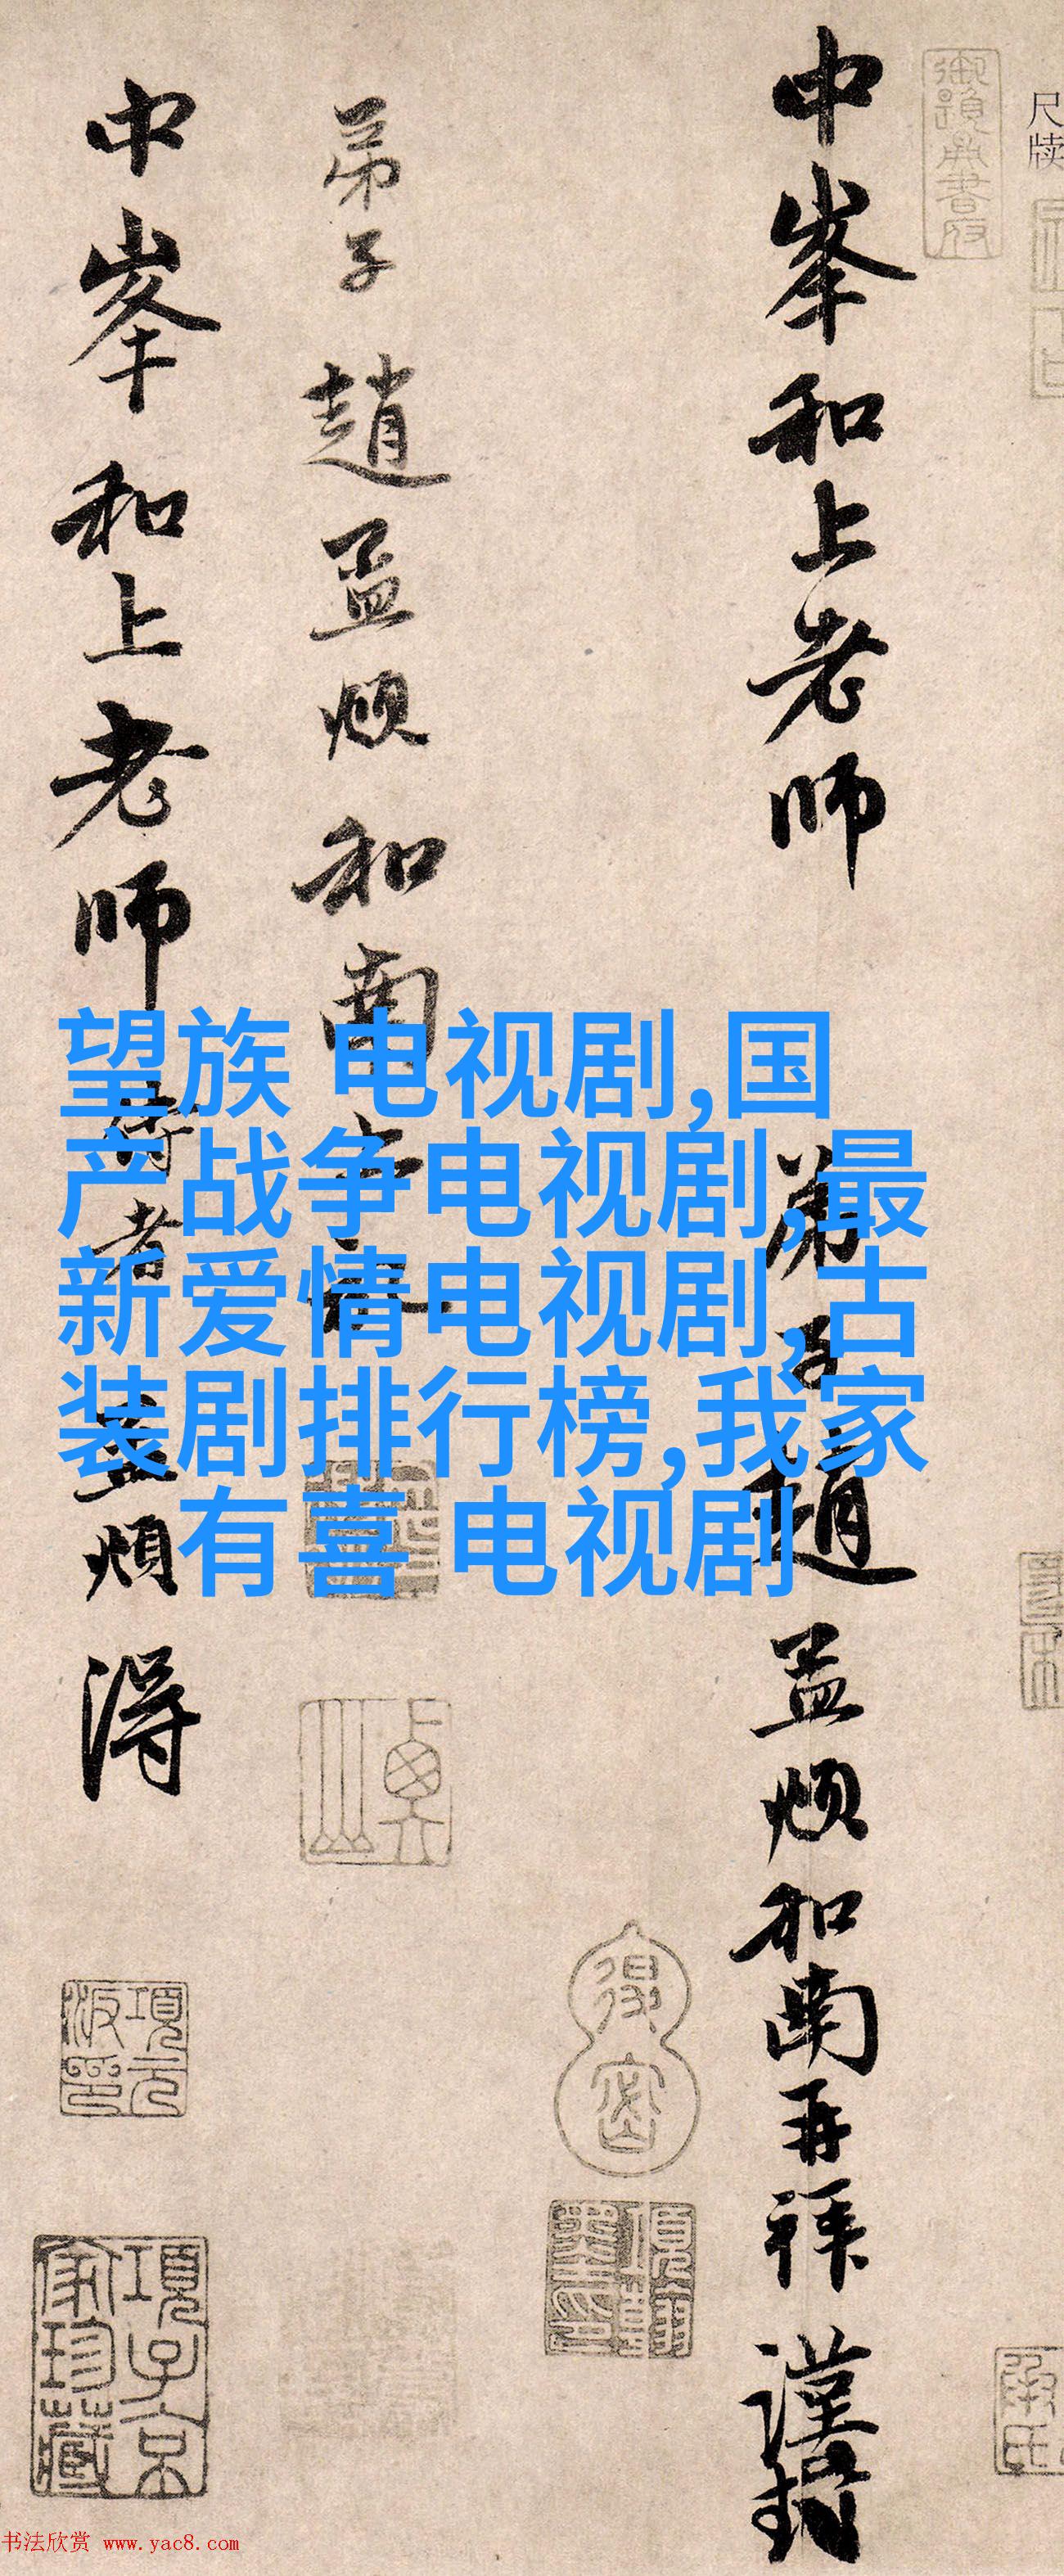 尺牍
中峯和上老师
弟子趙孟頫和南再拜謹封
弟子趙孟頫和南
中峯和上老师侍者孟頫
望族 电视剧,国
产战争电视剧,最
新爱情电视剧,古
装剧排行榜,我家
有喜 电视剧
項子京
家珍藏
书法欣赏 www.yac8.com